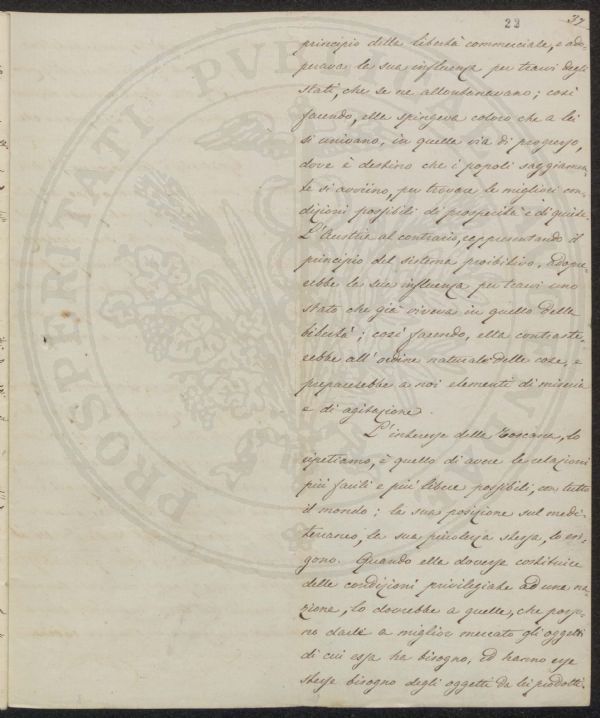 23
37
principio della libertà commerciale, e ado-
perava la sua influenza per trarvi degli
stati, che se ne allontanavano; così
facendo, ella spingeva coloro che a lei
si univano, in quella via di progresso,
dove è destino che i popoli saggiamen-
te si avviino, per trovare le migliori con-
dizioni possibili di prosperità e di quiete.
L'Austria al contrario, rappresentando il
principio del sistema proibitivo, adopre-
rebbe la sua influenza per trarvi uno
stato che già viveva in quello della
libertà; così facendo, ella contraste-
rebbe all'ordine naturale delle cose, e
preparerebbe a noi elementi di miseria
e di agitazione.
L'interesse della Toscana, lo
ripetiamo, è quello di avere le relazioni
più facili e più libere possibili, con tutto
il mondo; la sua posizione sul medi-
terraneo, la sua piccolezza stessa, lo esi-
gono. Quando ella dovesse costituire
delle condizioni privilegiate ad una na-
zione, lo dovrebbe a quelle, che posso-
no darle a miglior mercato gli oggetti
di cui essa ha bisogno, ed hanno esse
stesse bisogno degli oggetti da lei prodotti.
PROSPERITATI PVBLICAE